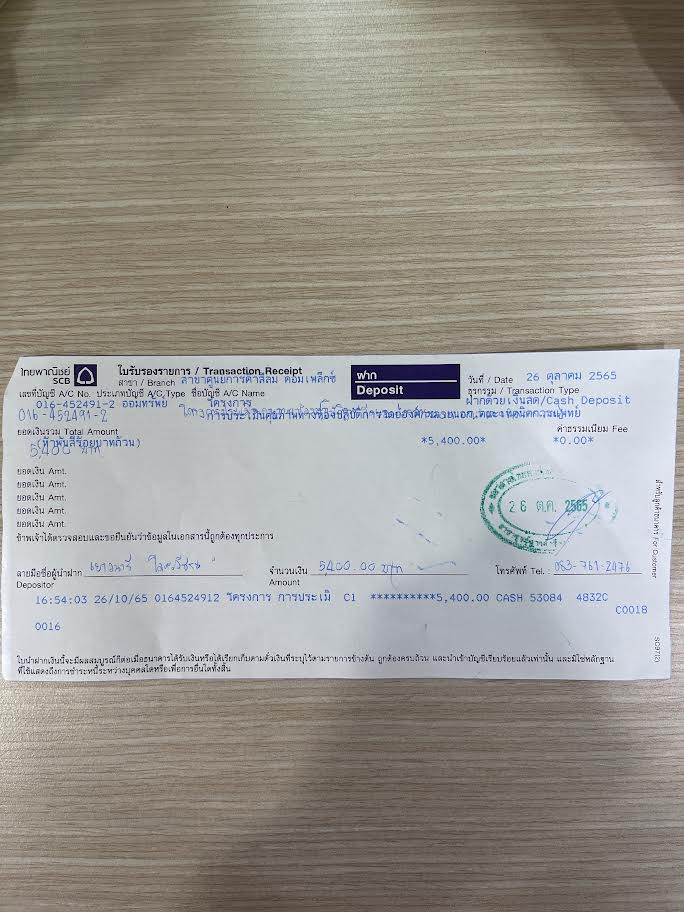 ไทยพาณิชย์ SCB
ใบรับรองรายการ / Transaction Receipt
สาขา / Branch สาขาศูนย์การค้าสีลม คอมเพล็กซ์
ฝาก
Deposit
วันที่ / Date 26 ตุลาคม 2565
ธุรกรรม / Transaction Type
ฝากด้วยเงินสด/Cash Deposit
เลขที่บัญชี A/C No. ประเภทบัญชี A/C Type ชื่อบัญชี A/C Name
016-452491-2 ออมทรัพย์ โครงการ
016-452491-2
การประเมินคุณภาพทางห้องปฏิบัติการ เทคนิคการแพทย์
ยอดเงินรวม Total Amount
ค่าธรรมเนียม Fee
(ห้าพันสี่ร้อยบาทถ้วน) *5,400.00* *0.00*
5,400 บาท
ยอดเงิน Amt.
ยอดเงิน Amt.
ยอดเงิน Amt.
ยอดเงิน Amt.
ยอดเงิน Amt.
26 ต.ค. 2565
ข้าพเจ้าได้ตรวจสอบและขอยืนยันว่าข้อมูลในเอกสารนี้ถูกต้องทุกประการ
ลายมือชื่อผู้นำฝาก จำนวนเงิน 5,400.00 บาท โทรศัพท์ Tel. : 083-761-2476
Depositor Amount
16:54:03 26/10/65 0164524912 วโครงการ การประเมิ C1 **********5,400.00 CASH 53084 4832C
C0018
0016
ใบนำฝากเงินนี้จะมีผลสมบูรณ์ก็ต่อเมื่อธนาคารได้รับเงินหรือได้เรียกเก็บตามตั๋วเงินที่ระบุไว้ตามรายการข้างต้น ถูกต้องครบถ้วน และนำเข้าบัญชีเรียบร้อยแล้วเท่านั้น และมิใช่หลักฐาน
ที่ใช้แสดงถึงการชำระหนี้ระหว่างบุคคลใดหรือเพื่อการอื่นใดทั้งสิ้น
สำหรับลูกค้าธนาคาร For Customer